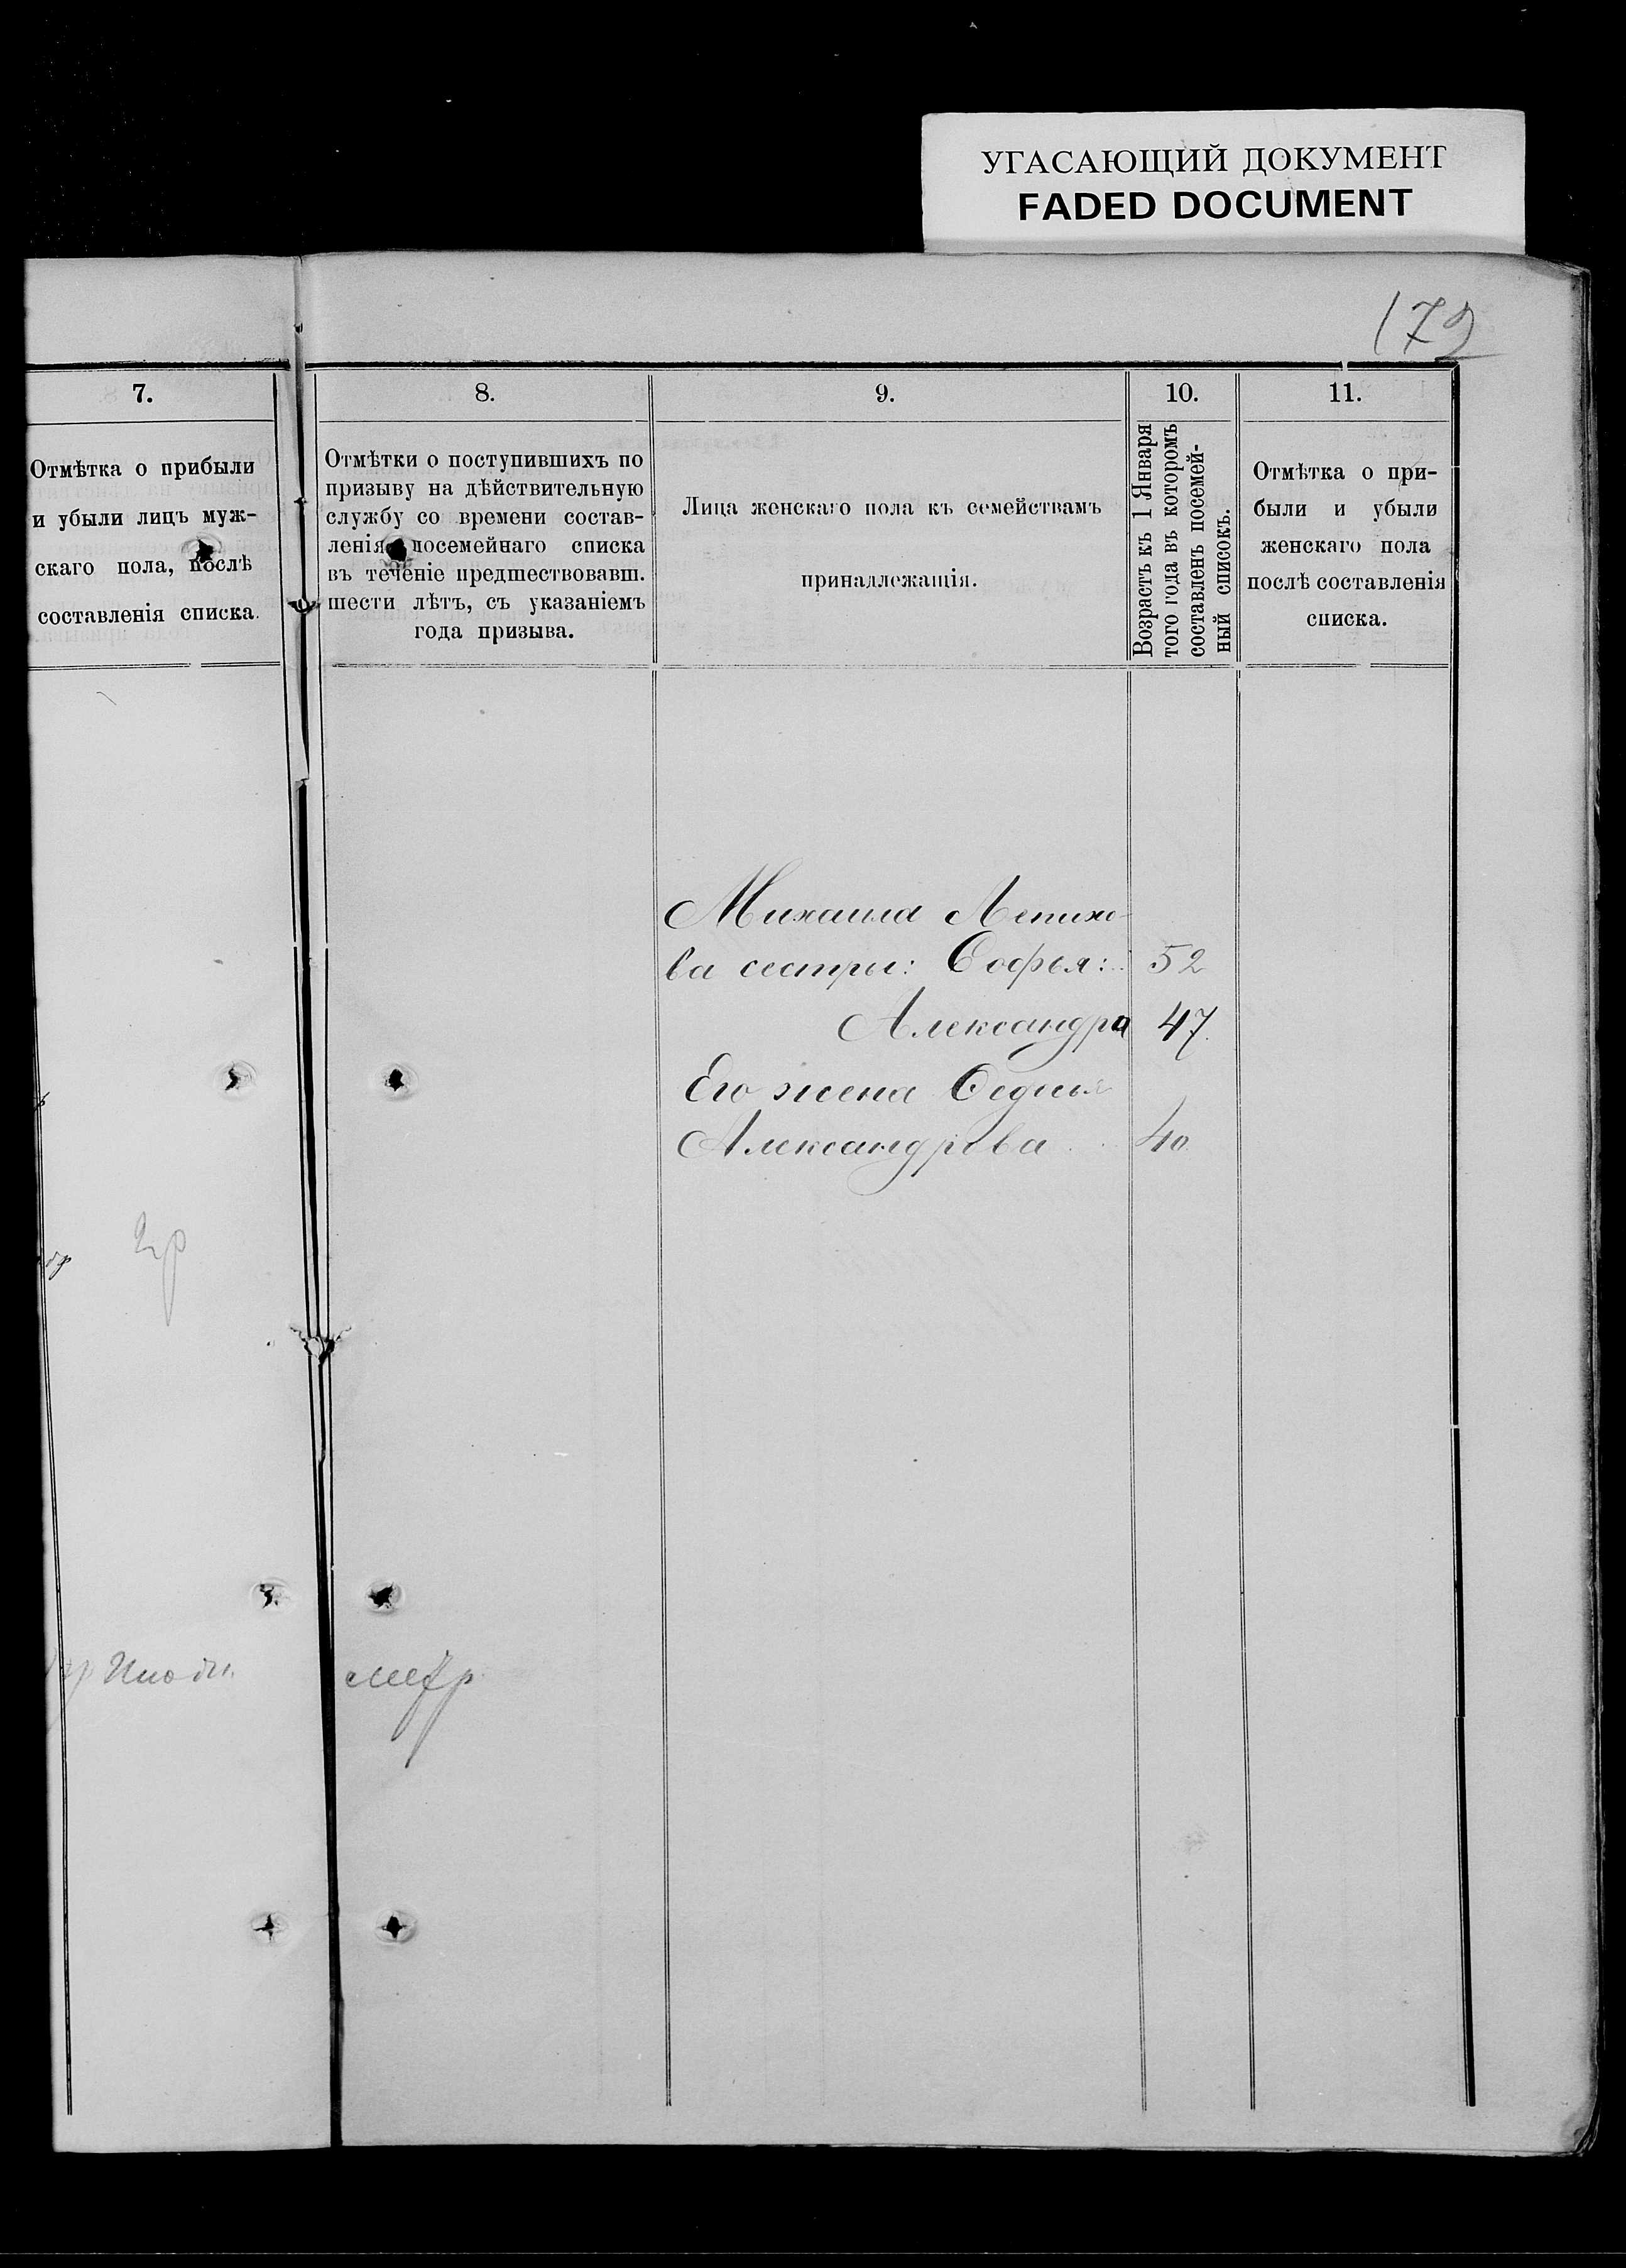 УГАСАЮЩИЙ ДОКУМЕНТ
FADED DOCUMENT
172
7.
8.
9.
10.
11.
Отмѣтка о прибыли
и убыли лицъ муж-
скаго пола, послѣ
составленія списка.
Отмѣтки о поступившихъ по
призыву на дѣйствительную
службу со времени состав-
ленія посемейнаго списка
въ теченіе предшествовавш.
шести лѣтъ, съ указаніемъ
года призыва.
Лица женскаго пола къ семействамъ
принадлежащія.
Возрастъ къ 1 Января
того года въ которомъ
составленъ посемей-
ный списокъ.
Отмѣтка о при-
были и убыли
женскаго пола
послѣ составленія
списка.
Михаила Лепихо-
ва сестры: Софья: 52
Александра 47.
Его жена
Александрова 40